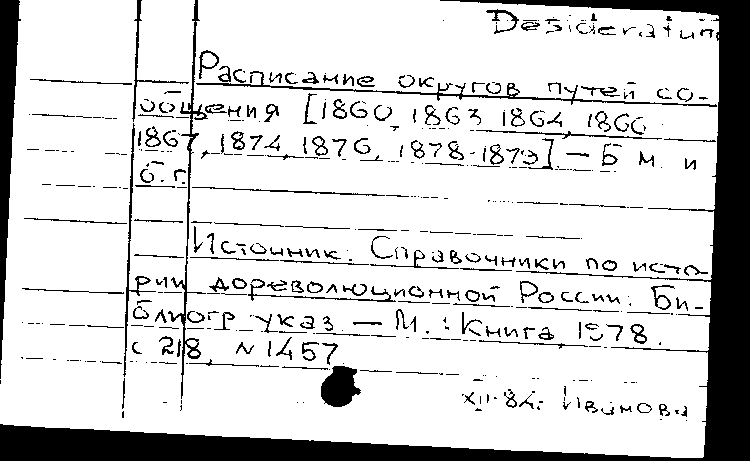 Desideratum
Расписание округов путей со-
общения [1860, 1863 1864, 1866
1867, 1874, 1876, 1878-1879] — Б м. и
б. г.
Источник: Справочники по исто-
рии дореволюционной России: Би-
блиогр указ — М.: Книга, 1978.
с 218, N 1457
XII-84. Иванова